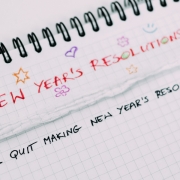 EW YEAR'S RESOLUTIONS
QUIT MAKING NEW YEAR'S RESO